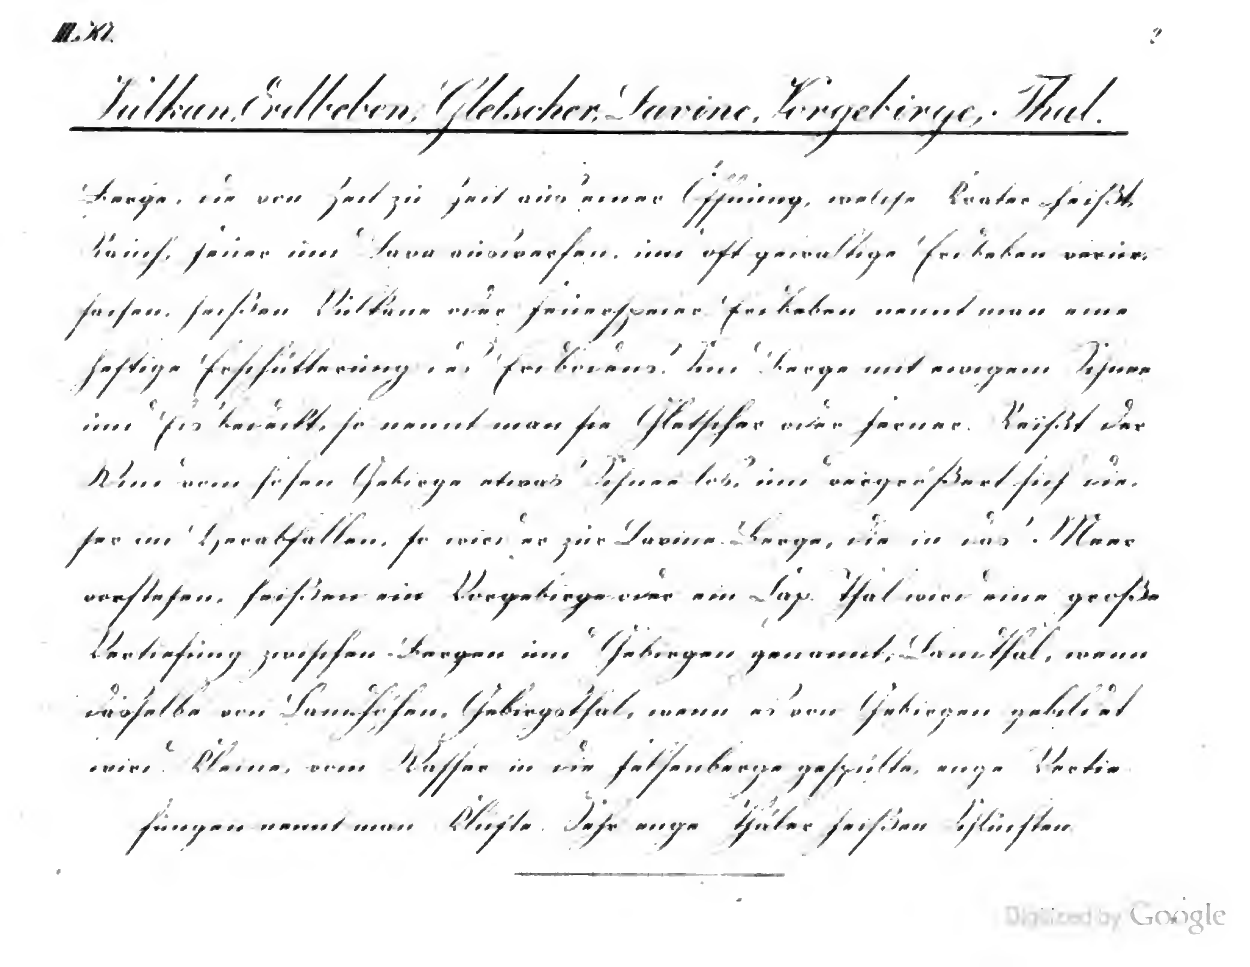 III. Kl. 2
Vulkan, Erdbeben, Gletscher, Lavine, Vorgebirge, Thal.
Berge, die von Zeit zu Zeit aus einer Öffnung, welche Krater heißt,
Rauch, Feuer und Lava auswerfen, und oft gewaltige Erdbeben verur,
sachen, heißen Vulkane oder Feuerspeier. Erdbeben nennt man eine
heftige Erschütterung des Erdbodens. Sind Berge mit ewigem Schnee
und Eis bedeckt, so nennt man sie Gletscher oder Ferner. Reißt der
Wind vom hohen Gebirge etwas Schnee los, und vergrößert sich die,
ser im Herabfallen, so wird er zur Lavine. Berge, die in das Meer
vorstehen, heißen ein Vorgebirge oder ein Cap. Thal wird eine große
Vertiefung zwischen Bergen und Gebirgen genannt; Landthal, wenn
dasselbe von Landhöhen, Gebirgsthal, wenn es von Gebirgen gebildet
wird. Kleine, vom Wasser in die Felsenberge gespülte, enge Vertie,
fungen nennt man Klüfte. Sehr enge Thäler heißen Schluchten.
Digitized by Google